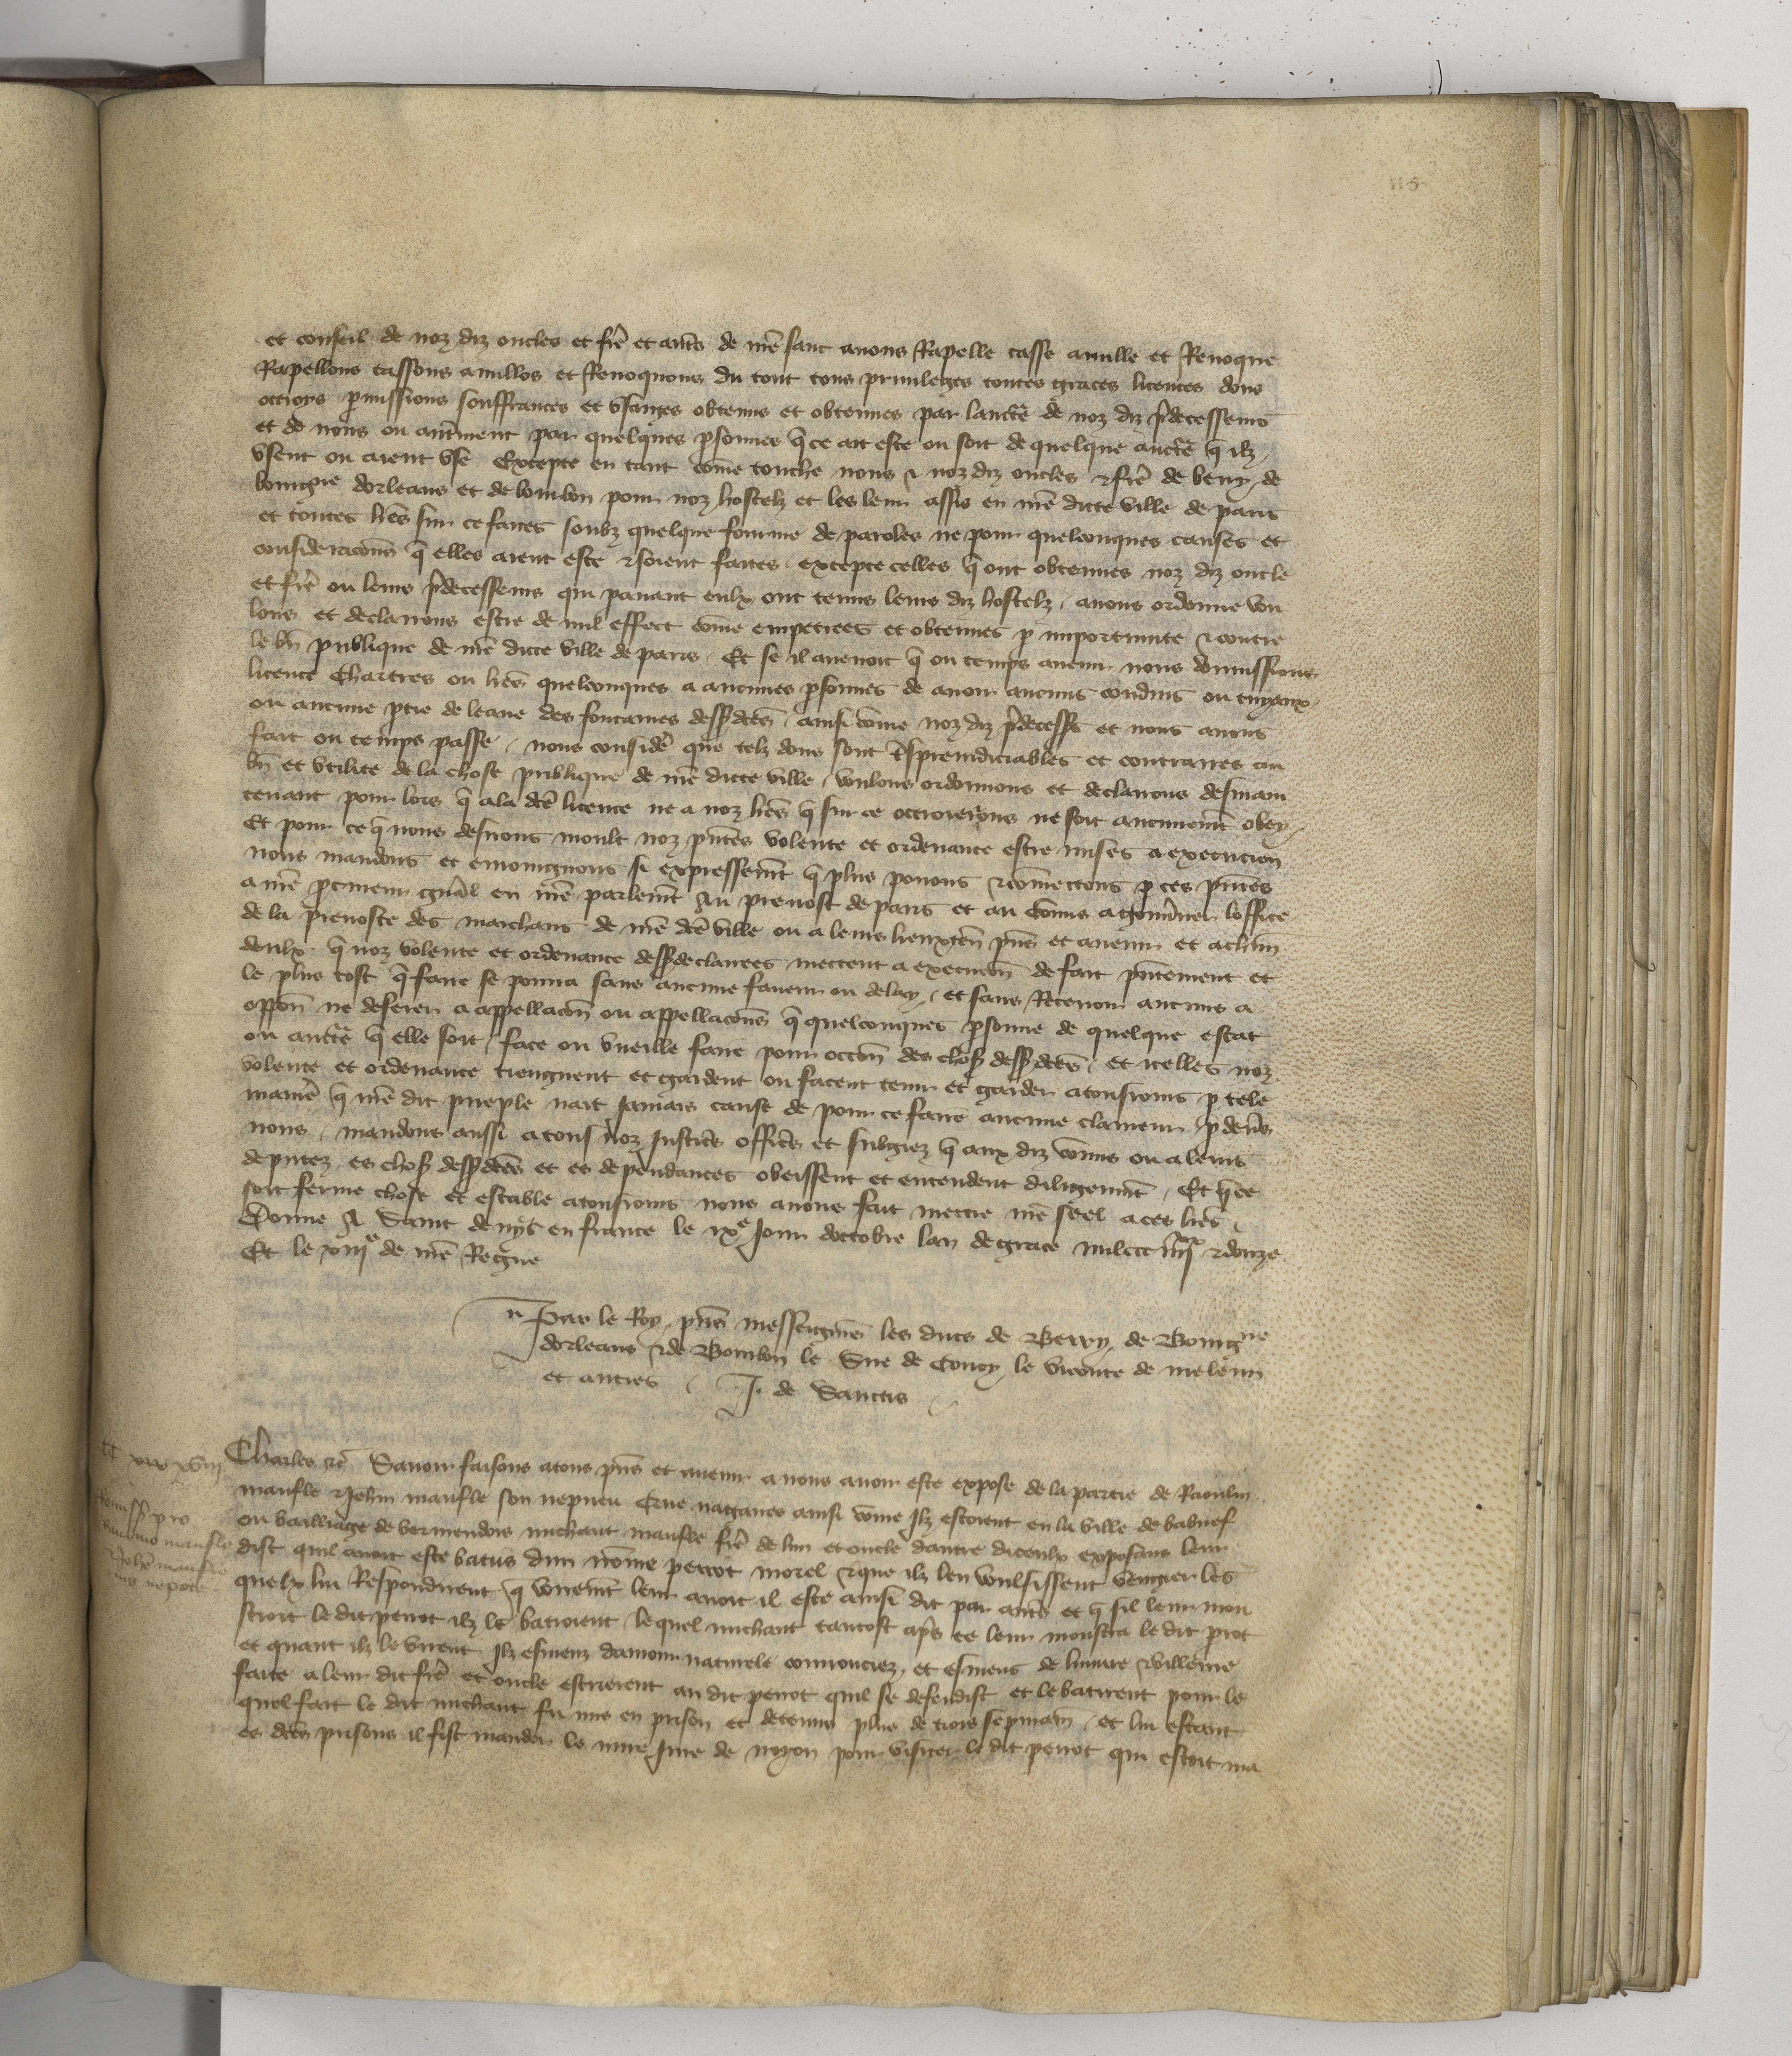 115
et conseil de noz diz oncles et fre et autres de nre sanc avons Rapelle casse anulle et Revoque
Rapellons cassons anullos et Revoquons du tout tous privileges toutes graces licences dons
ottroys pmissions souffrances et usages obtenus et obtenues par laucte de noz diz predecesseurs
et de nous ou autrment par quelques psonnes q ce ait este ou soit de quelque aucte q ilz
usent ou aient use Excepte en tant come touche nous & noz diz oncles & fre de berry de
bourgne dorleans et de bourbon pour noz hostelz et les leur assis en nre dicte ville de paris
et toutes lres sur ce faites soubz quelque fourme de paroles ne pour quelconques causes et
consideracions q elles aient este & soient faites excepte celles q ont obtenues noz diz oncle
et fre ou leurs predecesseurs qui par avant eulx ont tenus leurs diz hostelz avons ordonne vou
lons et declarons estre de nul effect come empetrees et obtenues p importunite & contre
le bn publique de nre dicte ville de paris Et se il avenoit q ou temps avenir nous donnissions
licence Chartres ou lres quelconques a aucunes psonnes de avoir aucuns conduis ou tuyaux
ou aucune ptie de leaue des fontaines desdctes ainsi come noz diz predecess et nous avons
fait ou temps passe nous consider que telz dons sont tresprejudiciables et contraires au
bn et utilite de la chose publique de nre dicte ville voulons ordonnons et declarons desmain
tenant pour lors q a la dce licence ne a noz lres q sur ce ottroierions ne soit aucunemt obey
Et pour ce q nous desirons moult noz pntes volente et ordenance estre mises a execucion
nous mandons et enioingnons si expressemt q plus povons & comettons p ces pntes
a nre procureur gnal en nre parlemt Au prevost de paris et au comis a gouvner loffice
de la prevoste des marchans de nre dce ville ou a leurs lieuxten pns et avenir et a chun
deulx q noz volente et ordenance desdeclarees mettent a execucon de fait pntement et
le plus tost q faire se pourra sans aucune faveur ou delay et sans Recevoir aucuns a
oppon ne deferer a appellacon ou appellacons q quelconques psonne de quelque estat
ou aucte q elle soit face ou vueille faire pour occon des choses desdctes et icelles noz
volente et ordenance tiengnent et gardent ou facent tenir et garder a tousiours p tele
maniere q nre dit pueple nait Jamais cause de pour ce faire aucune clameur p devers
nous mandons aussi a tous noz Justiciers officiers et subgiez q aux diz comis ou a leurs
deputez es choses desdctes et es dependances obeissent et entendent diligemmt Et q ce
soit ferme chose et estable a tousiours nous avons fait mettre nre seel a ces lres
Donne A Saint denys en france le ixe Jour doctobre lan de grace mil ccc iiiixx & douze
Et le xiiie de nre Regne
Par le Roy pns messeigneurs les ducs de Berry de Bourgne
dorleans & de Bourbon le Sire de Coucy le viconte de meleun
et autres J. de Sanctis
Charles &c Savoir faisons a tous pns et avenir a nous avoir este expose de la partie de Raoulin
maufle & Jehan maufle son nepveu Que nagaires ainsi come Ilz estoient en la ville de babuef
ou bailliage de vermendois michaut maufle fre de lun et oncle dautre diceulx exposans leur
dist quil avoit este batus dun nome perrot morel & que ilz len voulsissent vengier les
quelx lui Respondirent q vraiemt leur avoit il este ainsi dit par autres et q sil leur mon
stroit le dit perrot ilz le batroient lequel michaut tantost apres ce leur monstra le dit prot
et quant ilz le virent Ilz esmeuz damour naturele courrouciez et esmeus de linjure & villenie
faite a leur dit fre et oncle escrierent au dit perrot quil se defendist et le batirent pour le
quel fait le dit michaut fu mis en prison et detenu plus de trois sepmain et lui estant
es dces prisons il fist mander le mire Jure de noyon pour visiter le dit perrot qui estoit ma
Remiss pro
maufle
Johe maufle
nepote